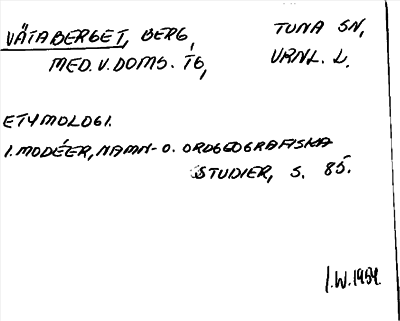 VÄTABERGET, BERG, TUNA SN,
MED. V. DOMS. TG, VRNL. L.
ETYMOLOGI.
I. MODÉER, NAMN- O. ORDGEOGRAFISKA
STUDIER, S. 85.
I.W. 1959.